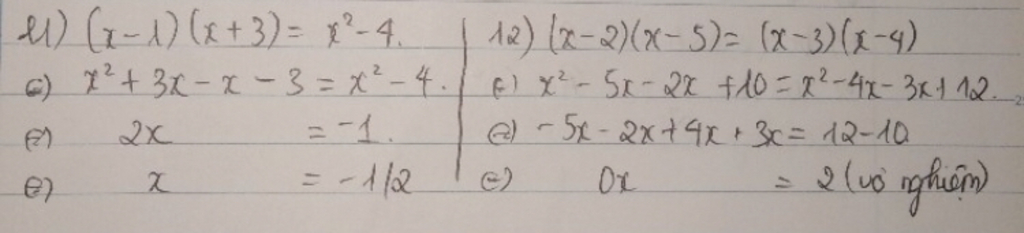 11) (x-1)(x+3) = x²-4.
⇔) x² + 3x - x - 3 = x² - 4.
⇔) 2x = -1.
⇔) x = -1/2
12) (x-2)(x-5) = (x-3)(x-4)
⇔) x² - 5x - 2x + 10 = x² - 4x - 3x + 12.
⇔) -5x - 2x + 4x + 3x = 12 - 10
⇔) 0x = 2 (vô nghiệm)